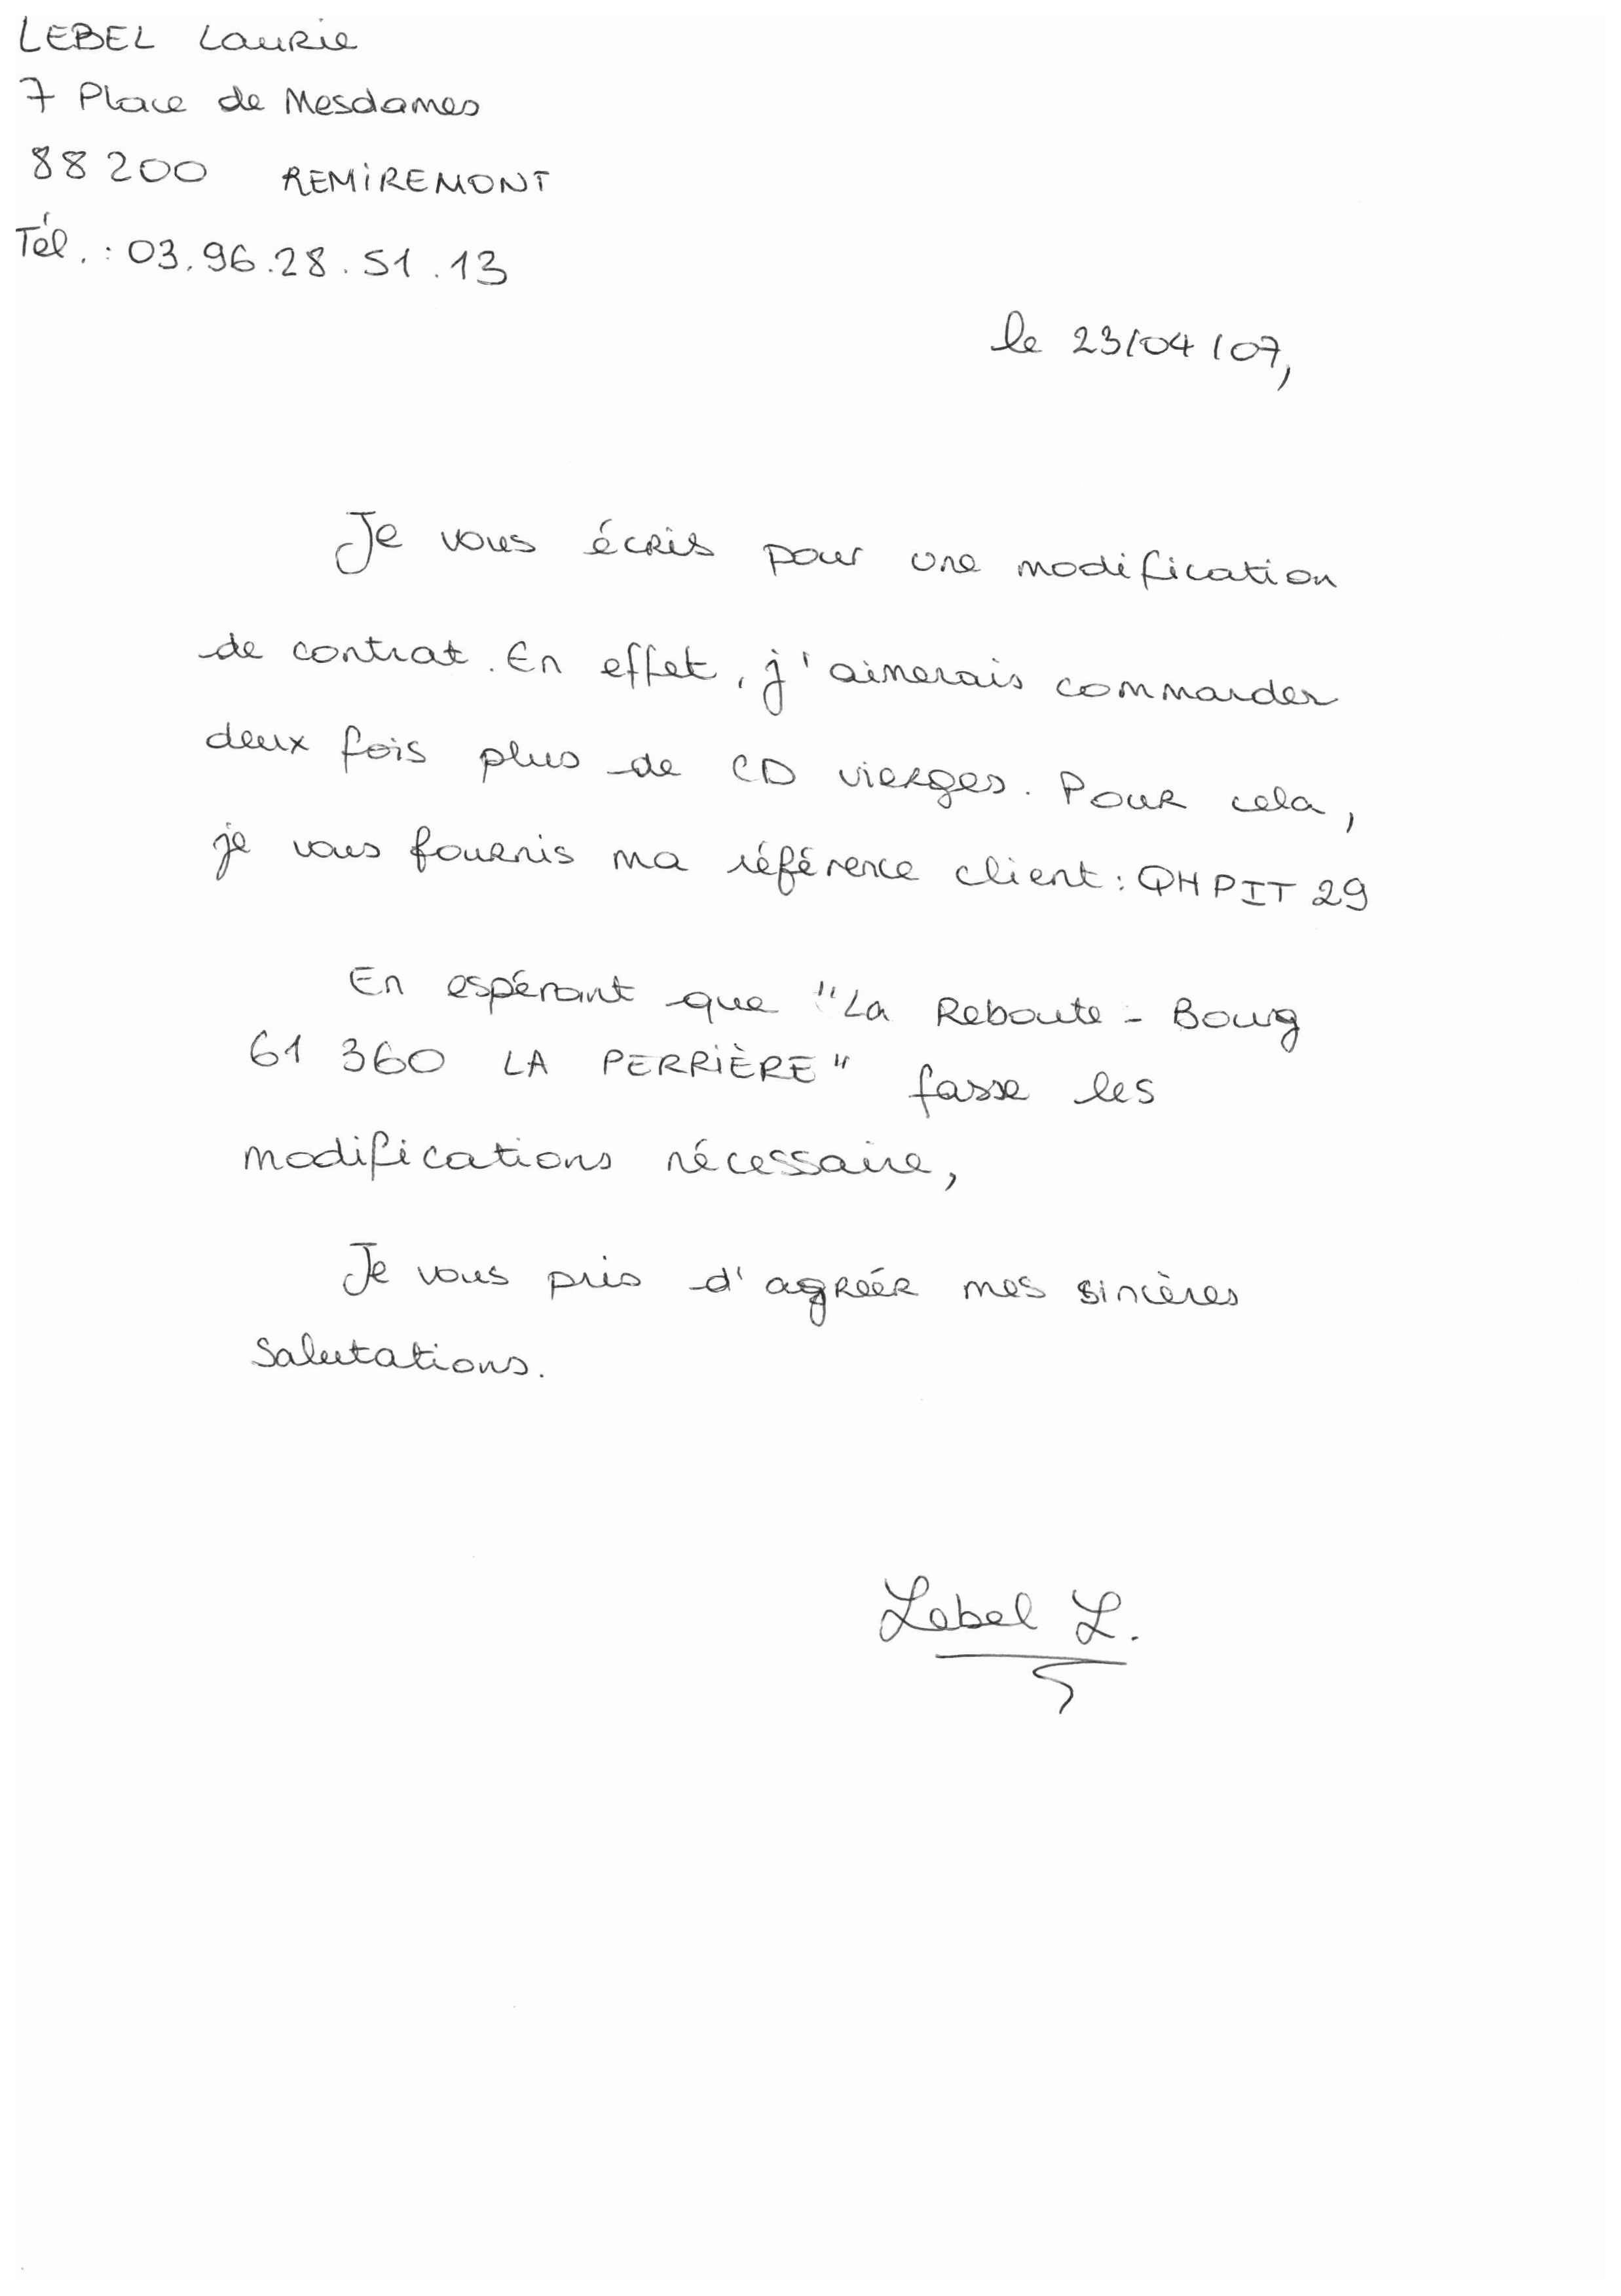 LEBEL Laurie
7 Place de Mesdames
88200 REMIREMONT
Tél. : 03.96.28.51.13
le 23/04/07,
Je vous écris pour une modification
de contrat. En effet, j'aimerais commander
deux fois plus de CD vierges. Pour cela,
je vous fournis ma référence client : QHPIT29
En espérant que "La Reboute - Bourg
61 360 LA PERRIÈRE" fasse les
modifications nécessaire,
Je vous pris d'agréér mes sincères
salutations.
Lebel L.